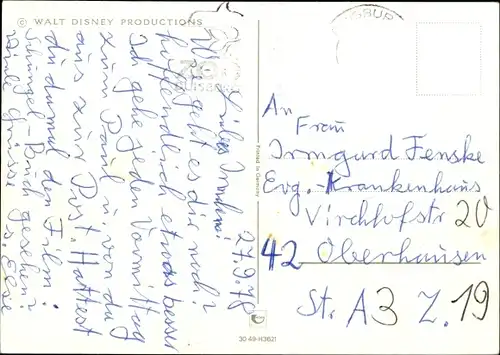 © WALT DISNEY PRODUCTIONS
27.9.78
Liebes Irmchen!
Wie geht es dir noch?
hoffendlich etwas besser
Ich gehe jeden Vormittag
zum Paul u. von da
aus zur Post. Hattest
du damal den Film:
Schungel-Buch gesehen?
Viele Grüsse
Printed in Germany
30 49-113621
An
Frau
Irmgard Fenske
Evg.-Krankenhaus
Virchofstr 20
42 Oberhausen
St. A3 Z. 19